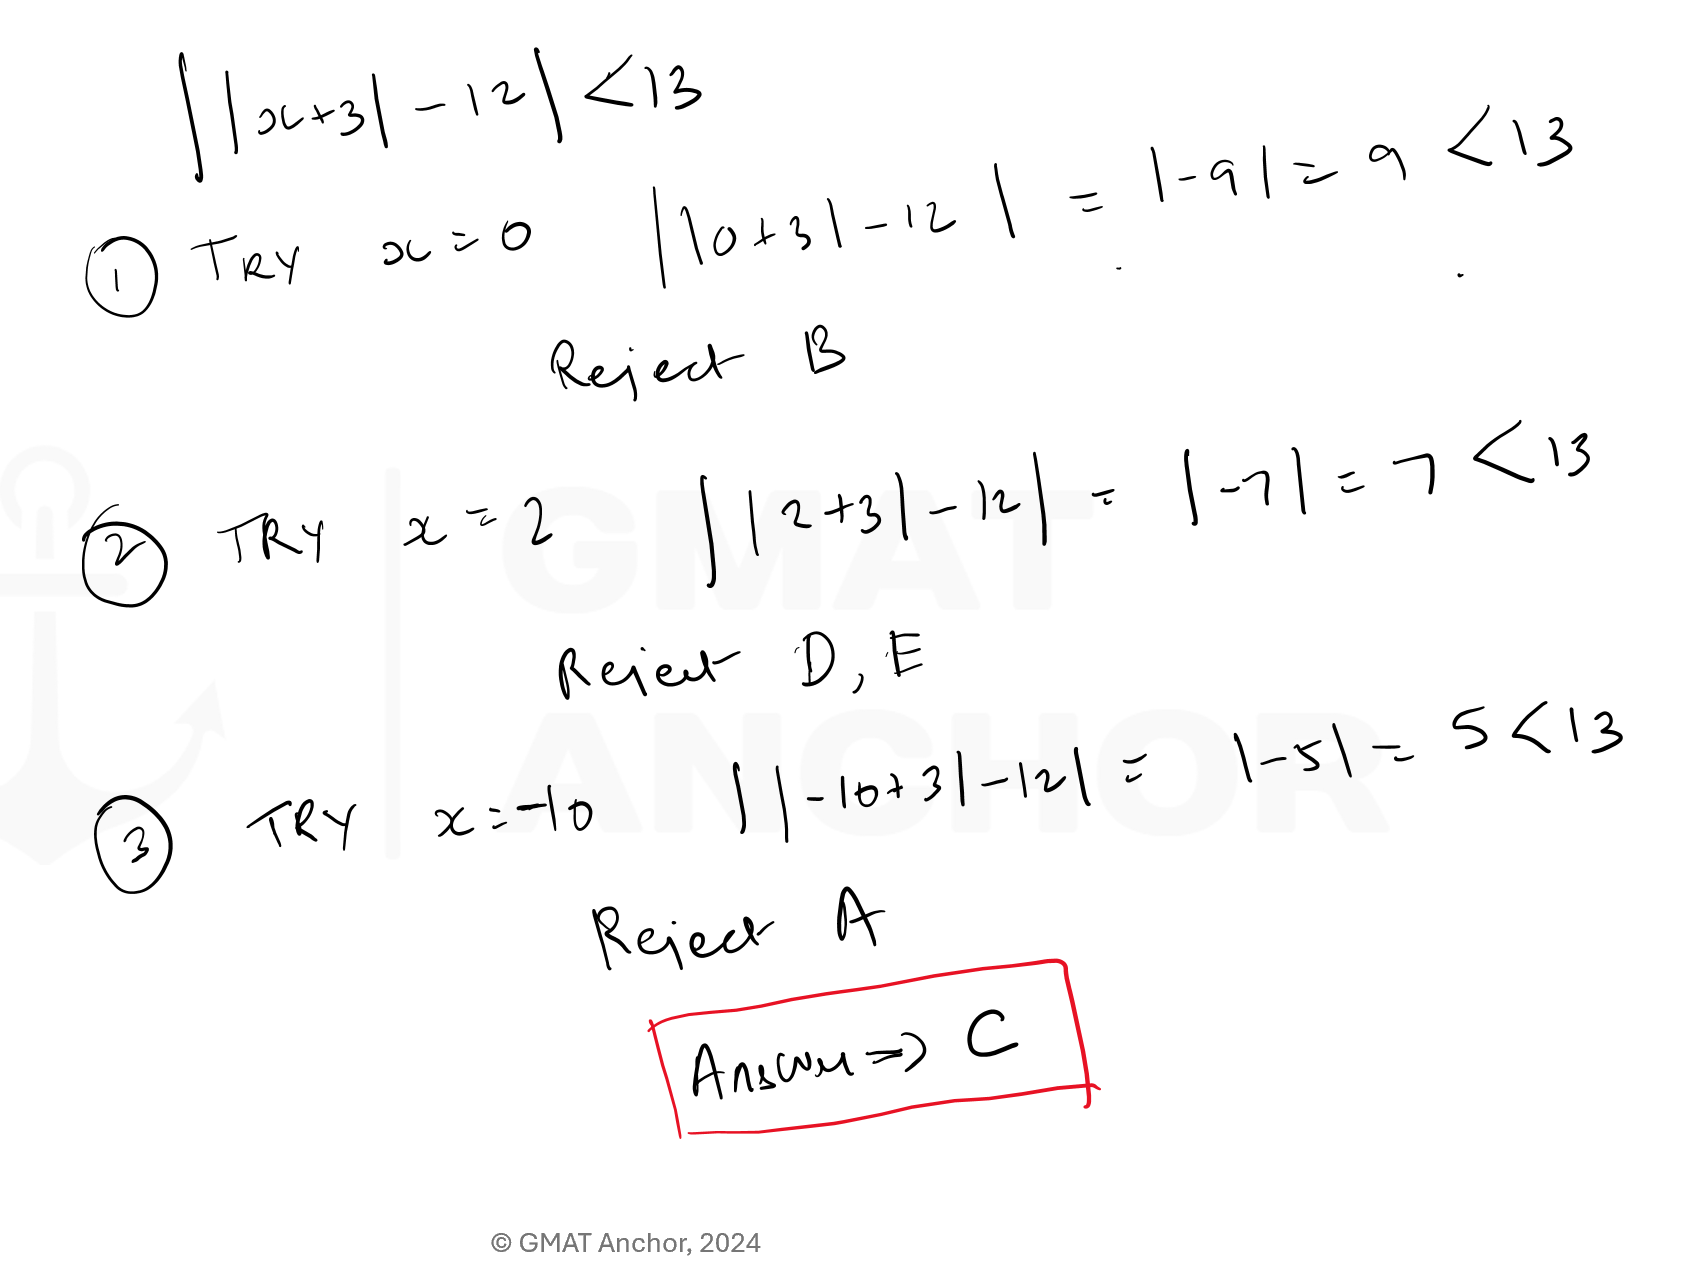 ||x+3|-12|<13
① TRY x=0 ||0+3|-12| = |-9| = 9 <13
Reject B
② TRY x=2 ||2+3|-12| = |-7| = 7 <13
Reject D, E
③ TRY x=-10 ||-10+3|-12| = |-5| = 5<13
Reject A
Answer => C
GMAT
ANCHOR
© GMAT Anchor, 2024